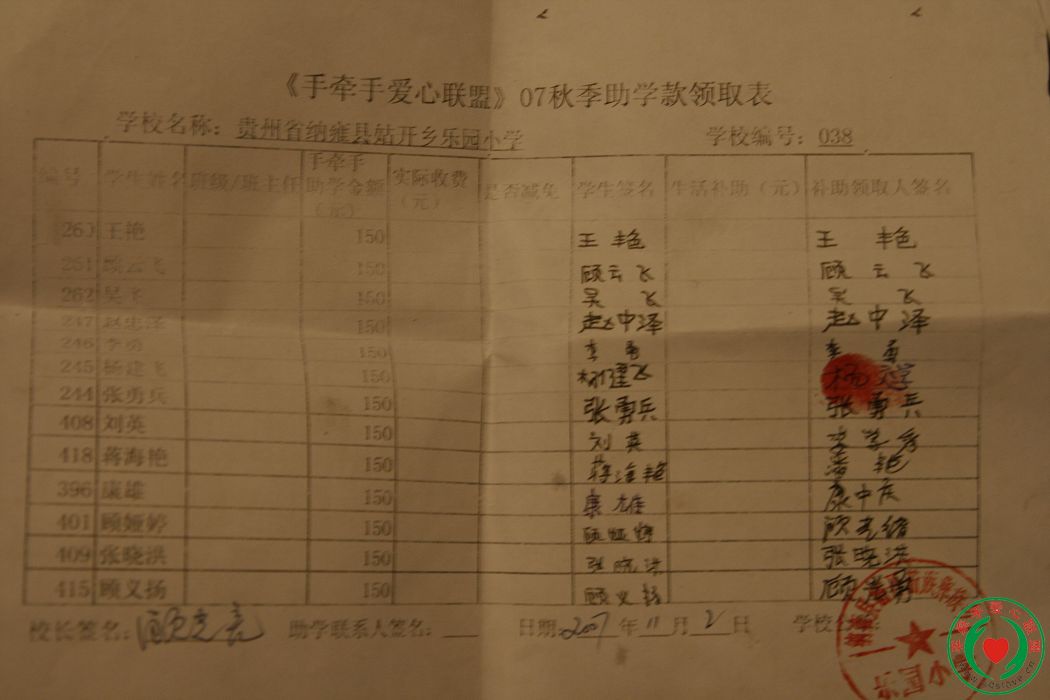 《手牵手爱心联盟》07秋季助学款领取表
学校名称：贵州省纳雍县姑开乡乐园小学 学校编号：038
编号 学生姓名 班级/班主任 手牵手助学金额（元） 实际收费（元） 是否减免 学生签名 生活补助（元） 补助领取人签名
260 王艳 150 王艳 王艳
261 顾云飞 150 顾云飞 顾云飞
262 吴飞 150 吴飞 吴飞
247 赵中泽 150 赵中泽 赵中泽
246 李勇 150 李勇 李勇
245 杨建飞 150 杨建飞 杨
244 张勇兵 150 张勇兵 张勇兵
408 刘英 150 刘英 李学秀
418 蒋海艳 150 蒋海艳 艳
396 康雄 150 康雄 康中庆
401 顾娅婷 150 顾娅婷 顾
409 张晓洪 150 张晓洪 张晓洪
415 顾义扬 150 顾义扬 顾
校长签名：顾 助学联系人签名： 日期：2007年11月2日 学校
乐园小